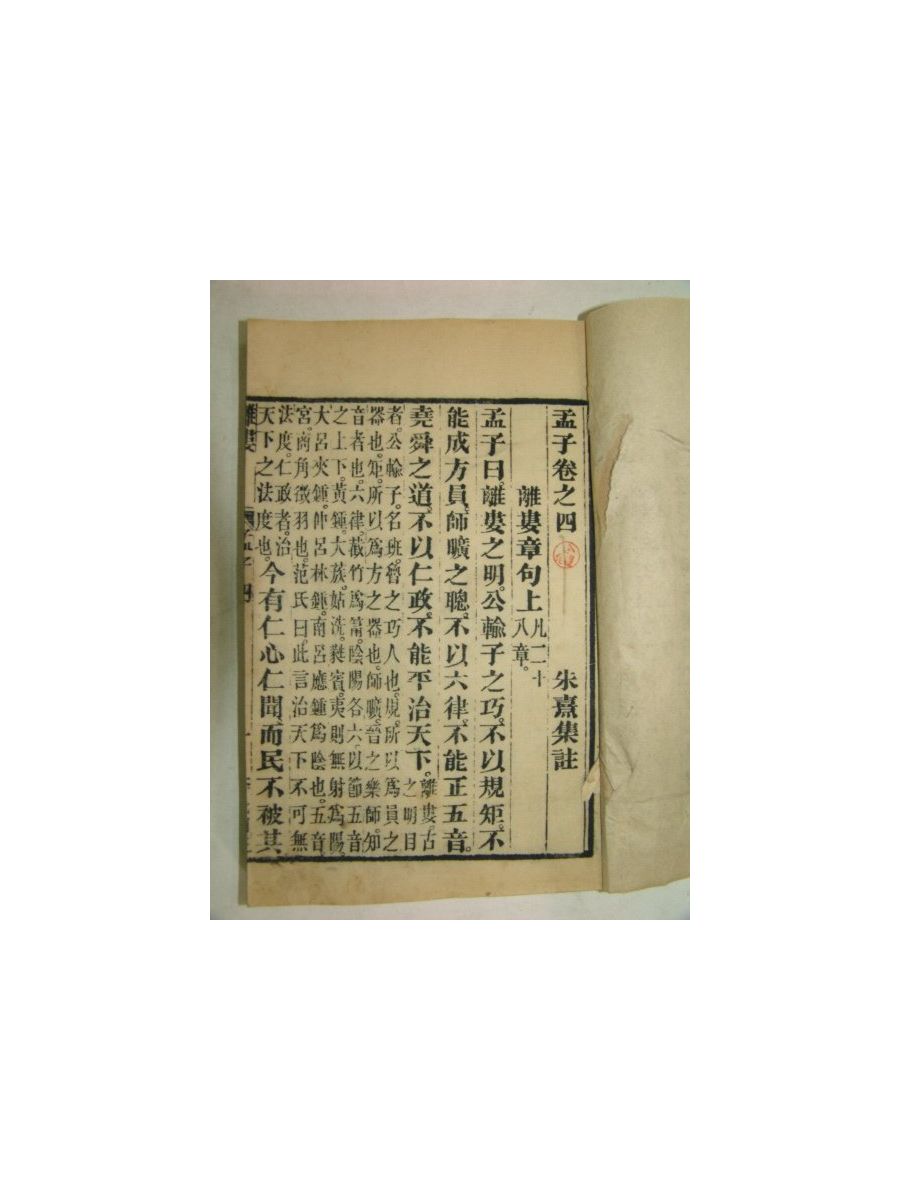 孟子卷之四 朱熹集註
離婁章句上 凡二十
八章。
孟子曰離婁之明。公輸子之巧。不以規矩。不
能成方員。師曠之聰。不以六律。不能正五音。
堯舜之道。不以仁政。不能平治天下。離婁古
之明目
者。公輸子。名班。魯之巧人也。規。所以爲員之
器也。矩。所以爲方之器也。師曠。晉之樂師。知
音者也。六律。截竹爲筩。陰陽各六。以節五音
之上下。黃鍾。大族。姑洗。蕤賓。夷則無射爲陽。
大呂夾鍾。仲呂林鍾。南呂應鍾爲陰也。五音。
宮。商角徵羽也。范氏曰。此言治天下不可無
法度。仁政者。治
天下之法度也。今有仁心仁聞。而民不被其
離婁 孟子 四 一